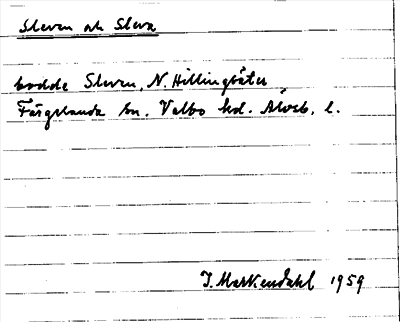 Sleven och Sleva
bodde Sleven, N. Hillingsäter
Färgelanda sn. Valbo hd. Älvsb. l.
J. Markendahl 1959